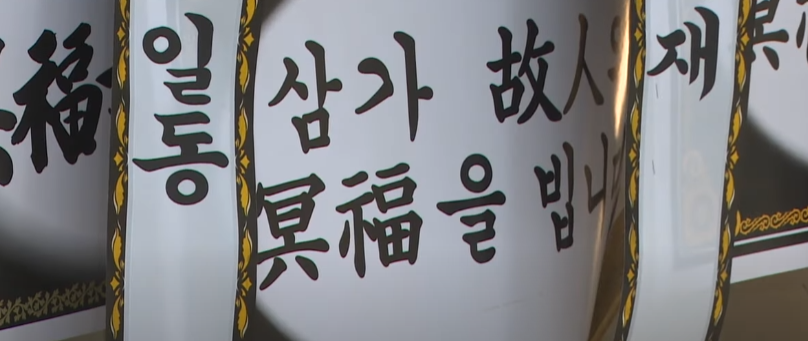 福
일동
삼가 故人의
冥福을 빕니다
재
冥